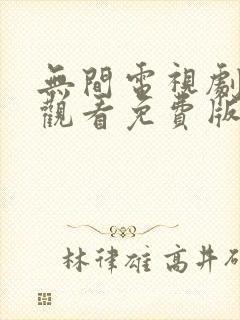 無間電視劇
觀看免費版
林律雄 高井研